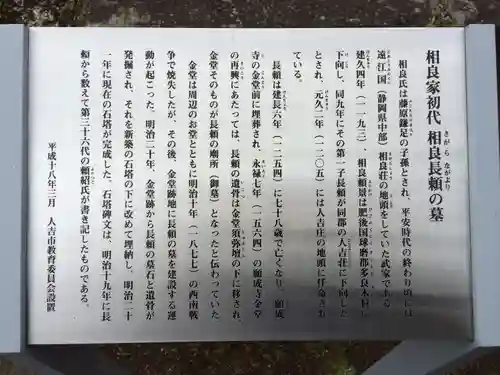 相良家初代 相良長頼の墓
さがら ながより
相良氏は藤原鎌足の子孫とされ、平安時代の終わり頃には
遠江国（静岡県中部）相良荘の地頭をしていた武家である
建久四年（一一九三）、相良頼景は肥後国球磨郡多良木村に
下向し、同九年にその第一子長頼が同郡の人吉荘に下向した
とされ、元久二年（一二〇五）には人吉荘の地頭に任命され
ている。
長頼は建長六年（一二五四）に七十八歳で亡くなり、願成
寺の金堂前に埋葬され、永禄七年（一五六四）の願成寺金堂
の再興にあたっては、長頼の遺骨は金堂須弥壇の下に移され、
金堂そのものが長頼の廟所（御墓）となったと伝わっていた
金堂は周辺のお堂とともに明治十年（一八七七）の西南戦
争で焼失したが、その後、金堂跡地に長頼の墓を建設する運
動が起こった。明治二十年、金堂跡から長頼の墓石と遺骨が
発掘され、それを新築の石塔の下に改めて埋納し、明治二十
一年に現在の石塔が完成した。石塔碑文は、明治十九年に長
頼から数えて第三十六代の頼紹氏が書き記したものである。
平成十八年三月 人吉市教育委員会設置